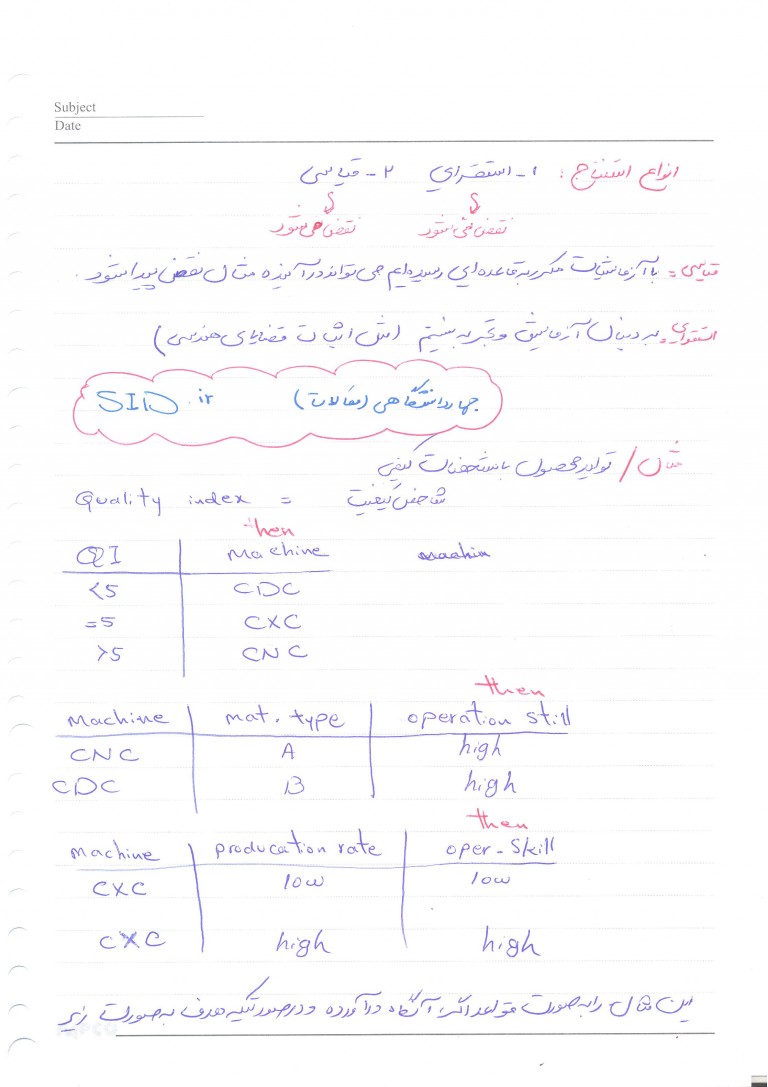 Subject
Date
انواع استنتاج : ۱- استقرای ۲- قیاسی
نقض نمی شود نقض می شود
قیاسی = با آزمایشات مکرر به قاعده ای رسیده ایم می تواند در آینده مثال نقض پیدا شود .
استقرای = به دنبال آزمایش و تجربه نیستیم (مثل اثبات قضایای هندسی)
جهاد دانشگاهی (مقالات) SID . ir
مثال / تولید محصول با مشخصات کیفی
Quality index = شاخص کیفیت
then
QI Machine
<5 CDC
=5 CXC
>5 CNC
then
Machine mat. type operation still
CNC A high
CDC B high
then
Machine producation rate oper-Skill
CXC low low
CXC high high
این مثال را به صورت قواعد اگر، آنگاه درآورده و در صورتیکه هدف به صورت زیر